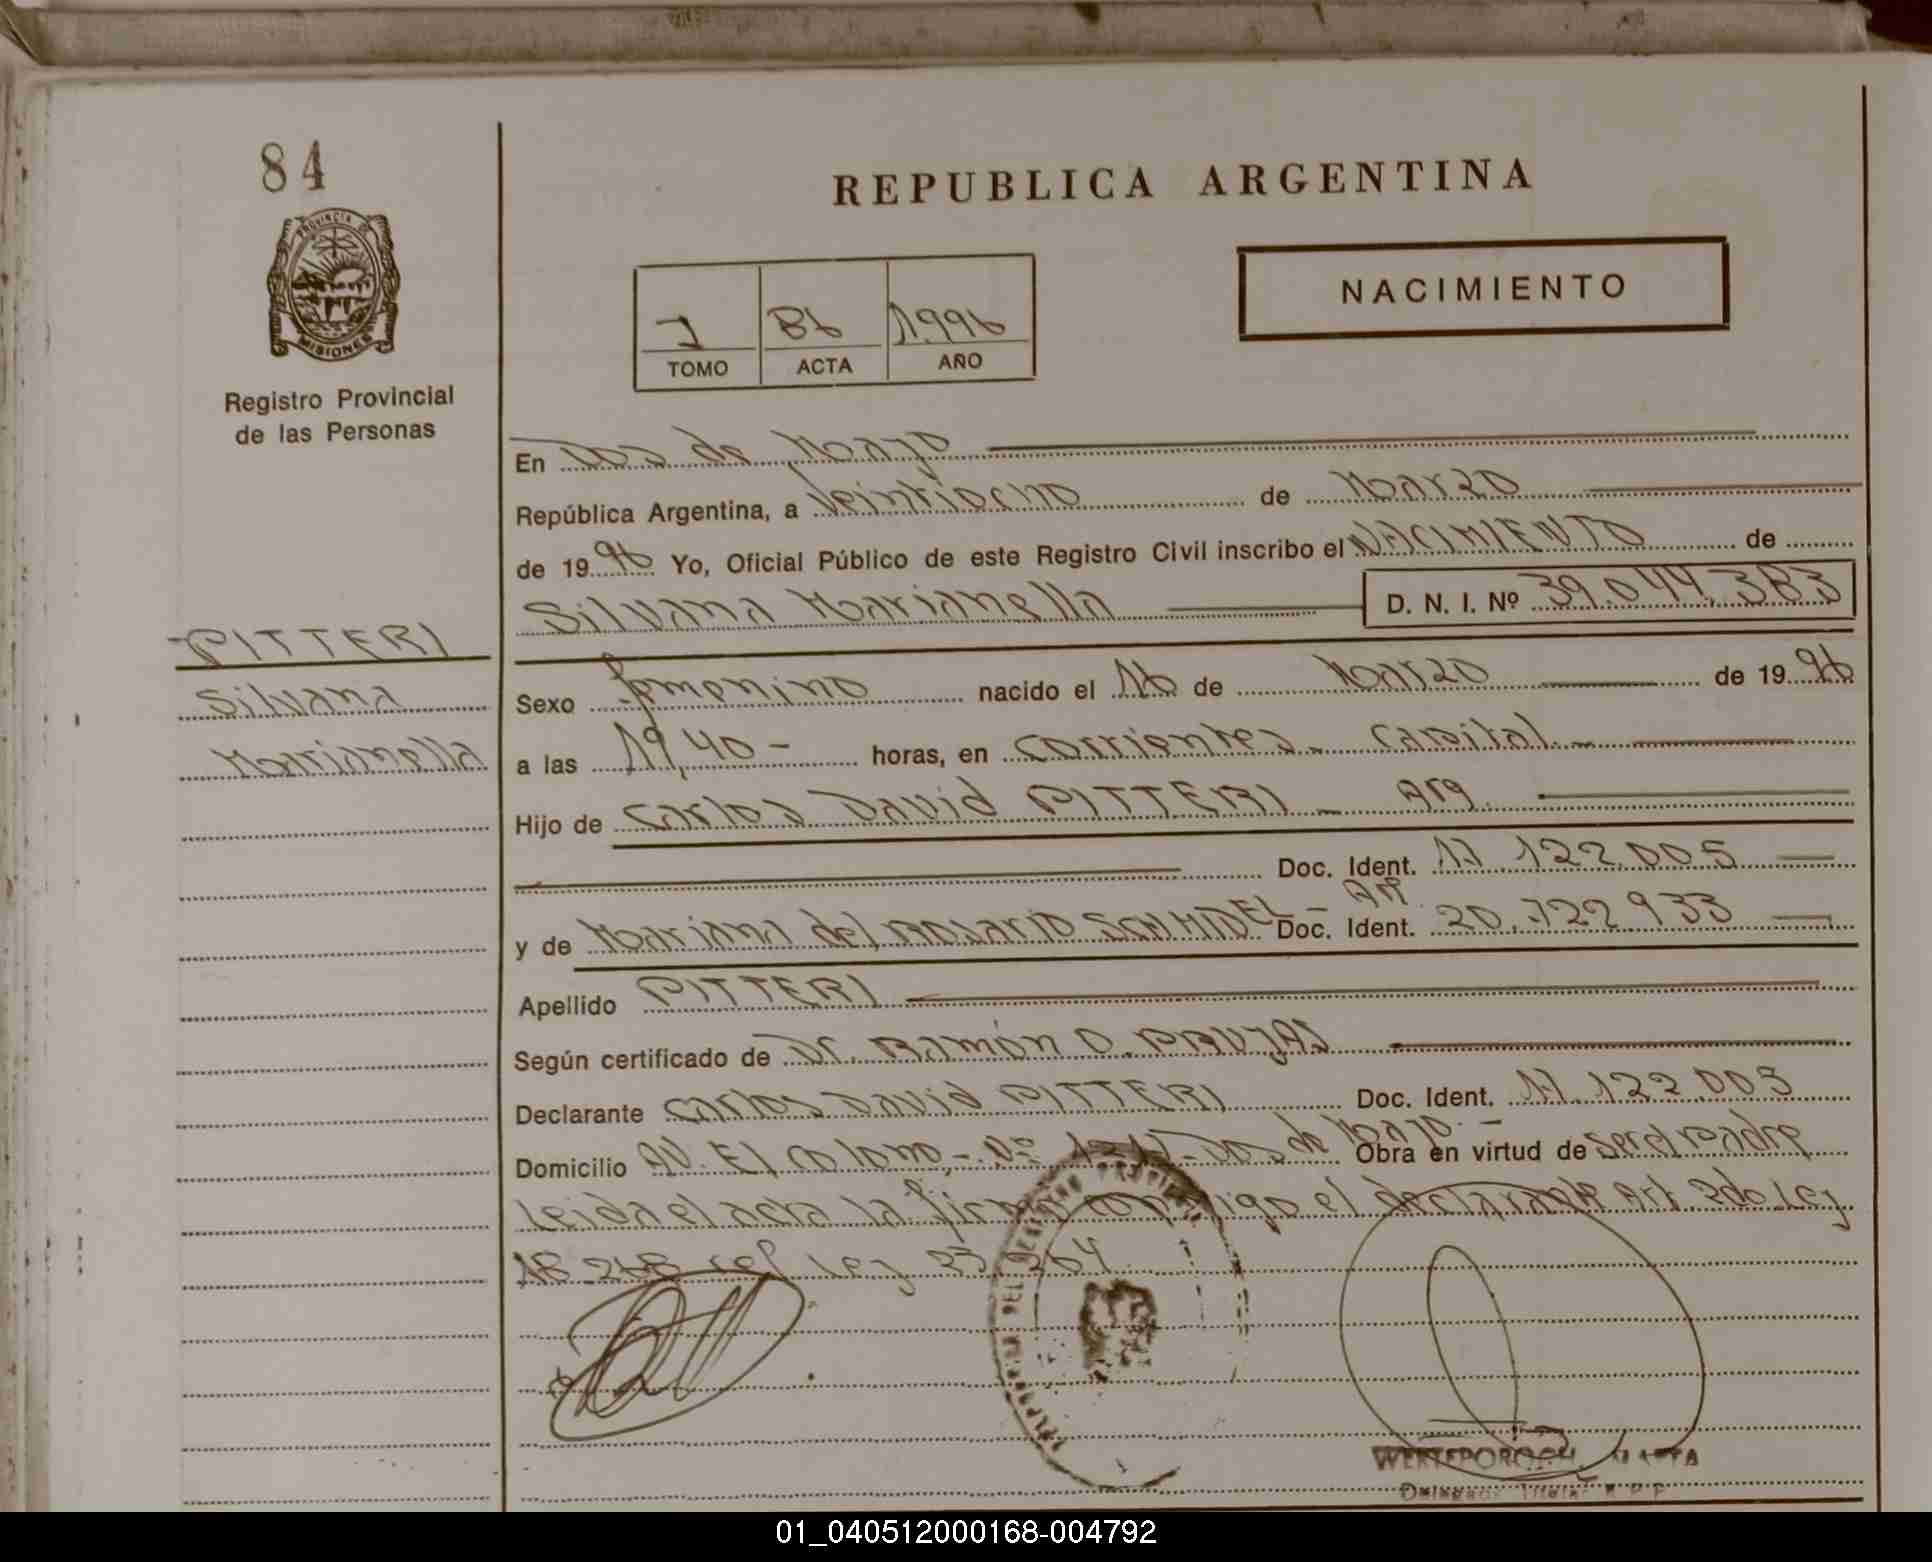 84
PROVINCIA DE
MISIONES
Registro Provincial
de las Personas
REPUBLICA ARGENTINA
I 86 1996
TOMO ACTA AÑO
NACIMIENTO
En Dos de Mayo
República Argentina, a Veintiocho de Marzo
de 19 96 Yo, Oficial Público de este Registro Civil inscribo el NACIMIENTO de
Silvana Marianella D. N. I. Nº 39.044.383
PITTERI
Silvana
Marianella
Sexo femenino nacido el 16 de Marzo de 19 96
a las 19,40- horas, en Corrientes - Capital -
Hijo de Carlos David PITTERI - Arg.
Doc. Ident. 17.122.005
y de Mariana del Rosario SCHMIDEL - Arg. Doc. Ident. 20.722.933
Apellido PITTERI
Según certificado de Dr. RAMÓN O. PAUJAS
Declarante Carlos David PITTERI Doc. Ident. 17.122.005
Domicilio AV. El Colono - Nº 1217 - Dos de Mayo.- Obra en virtud de ser el padre
Leida el acta la firma conmigo el declarante Art. 2do. Ley
18.248 ref Ley 23.264
WERLEPOROGH, MARTA
Delegada Titular R.P.P.
01_040512000168-004792